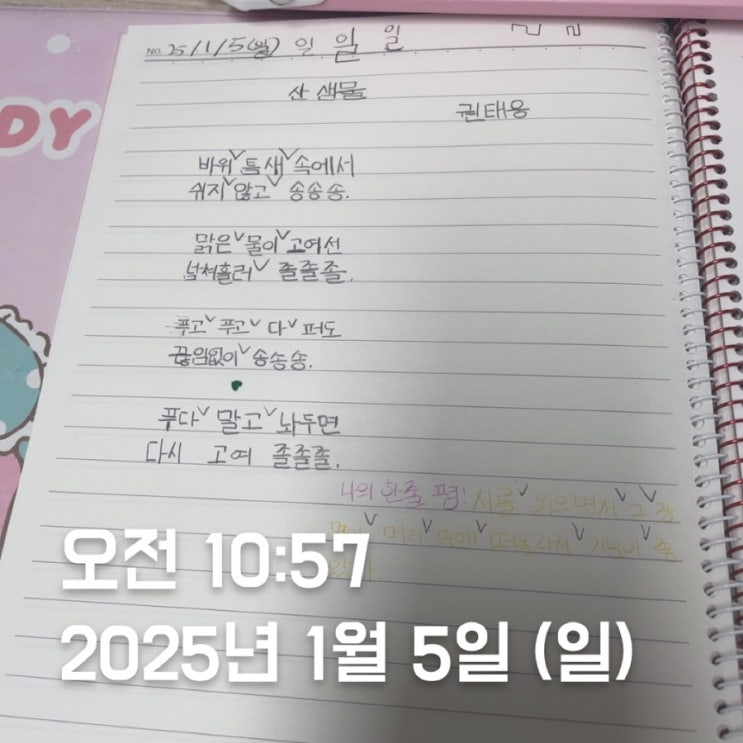 No. 25/1/5(일) 일 일 일
산 샘물
권태응
바위 틈새 속에서
쉬지 않고 송송송.
맑은 물이 고여선
넘쳐흘러 졸졸졸.
푸고 푸고 다 퍼도
끊임없이 송송송.
푸다 말고 놔두면
다시 고여 졸졸졸.
나의 한줄 평: 시를 읽으면서 그 장
면이 머리 속에 떠올라서 기분이 좋
았다.
DY
오전 10:57
2025년 1월 5일 (일)